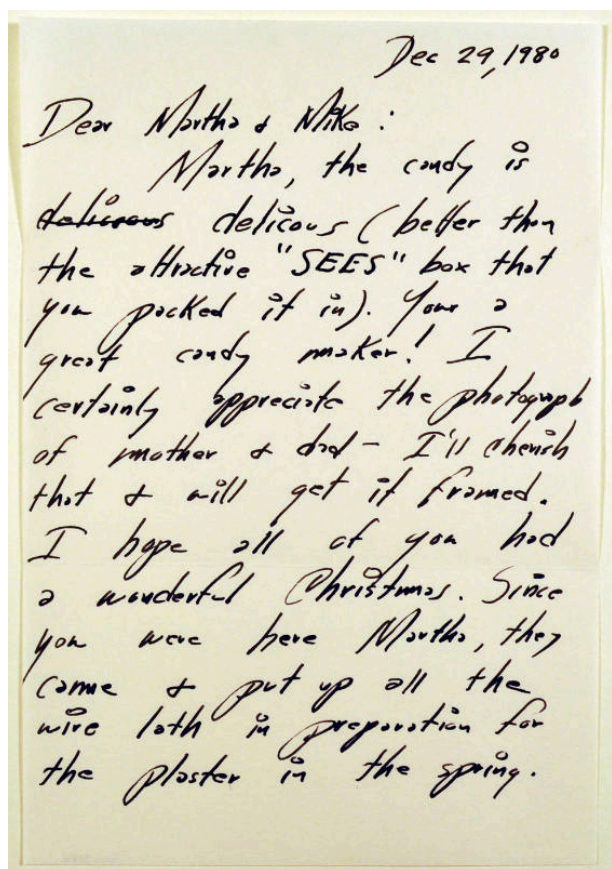 Dec 29, 1980
Dear Martha & Mike :
Martha, the candy is
delicious delicous (better than
the attractive "SEES" box that
you packed it in). Your a
great candy maker! I
certainly appreciate the photograph
of mother & dad - I'll cherish
that & will get it framed.
I hope all of you had
a wonderful Christmas. Since
you were here Martha, they
came & put up all the
wire lath in preparation for
the plaster in the spring.